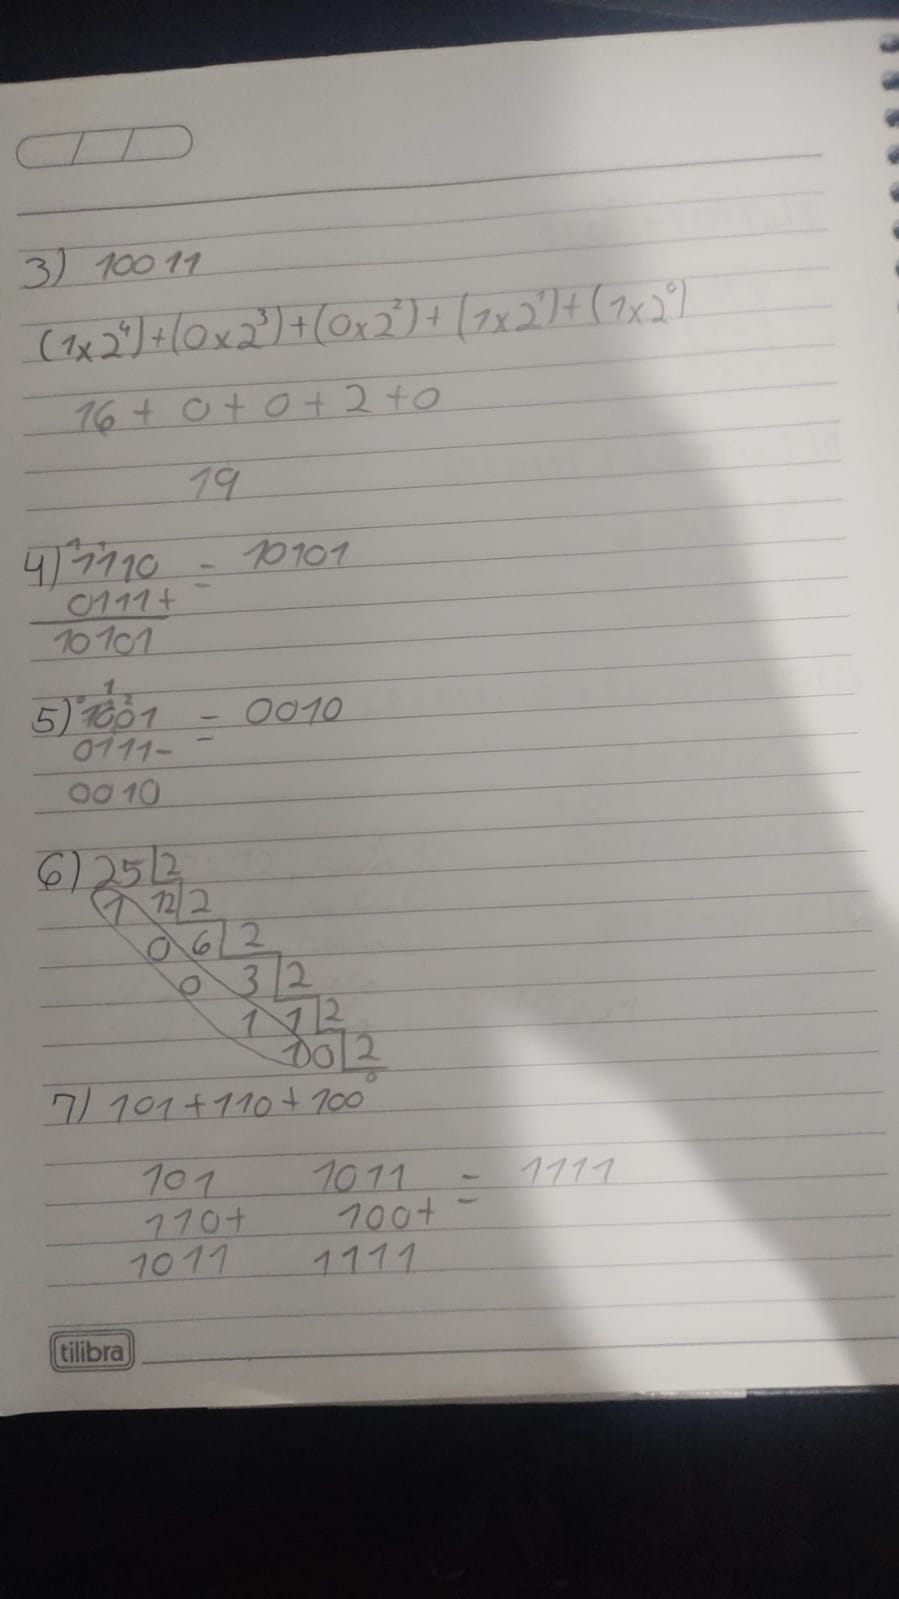 3) 10011
(1x2⁴)+(0x2³)+(0x2²)+(1x2¹)+(1x2⁰)
16 + 0 + 0 + 2 + 0
19
1 1
4) 1110 = 10101
0111+
10101
5) 1001 = 0010
0111-
0010
6) 25 2
1 12 2
0 6 2
0 3 2
1 1 2
1 0 2
0
7) 101+110+100
101 1011 = 1111
110+ 100+
1011 1111
tilibra